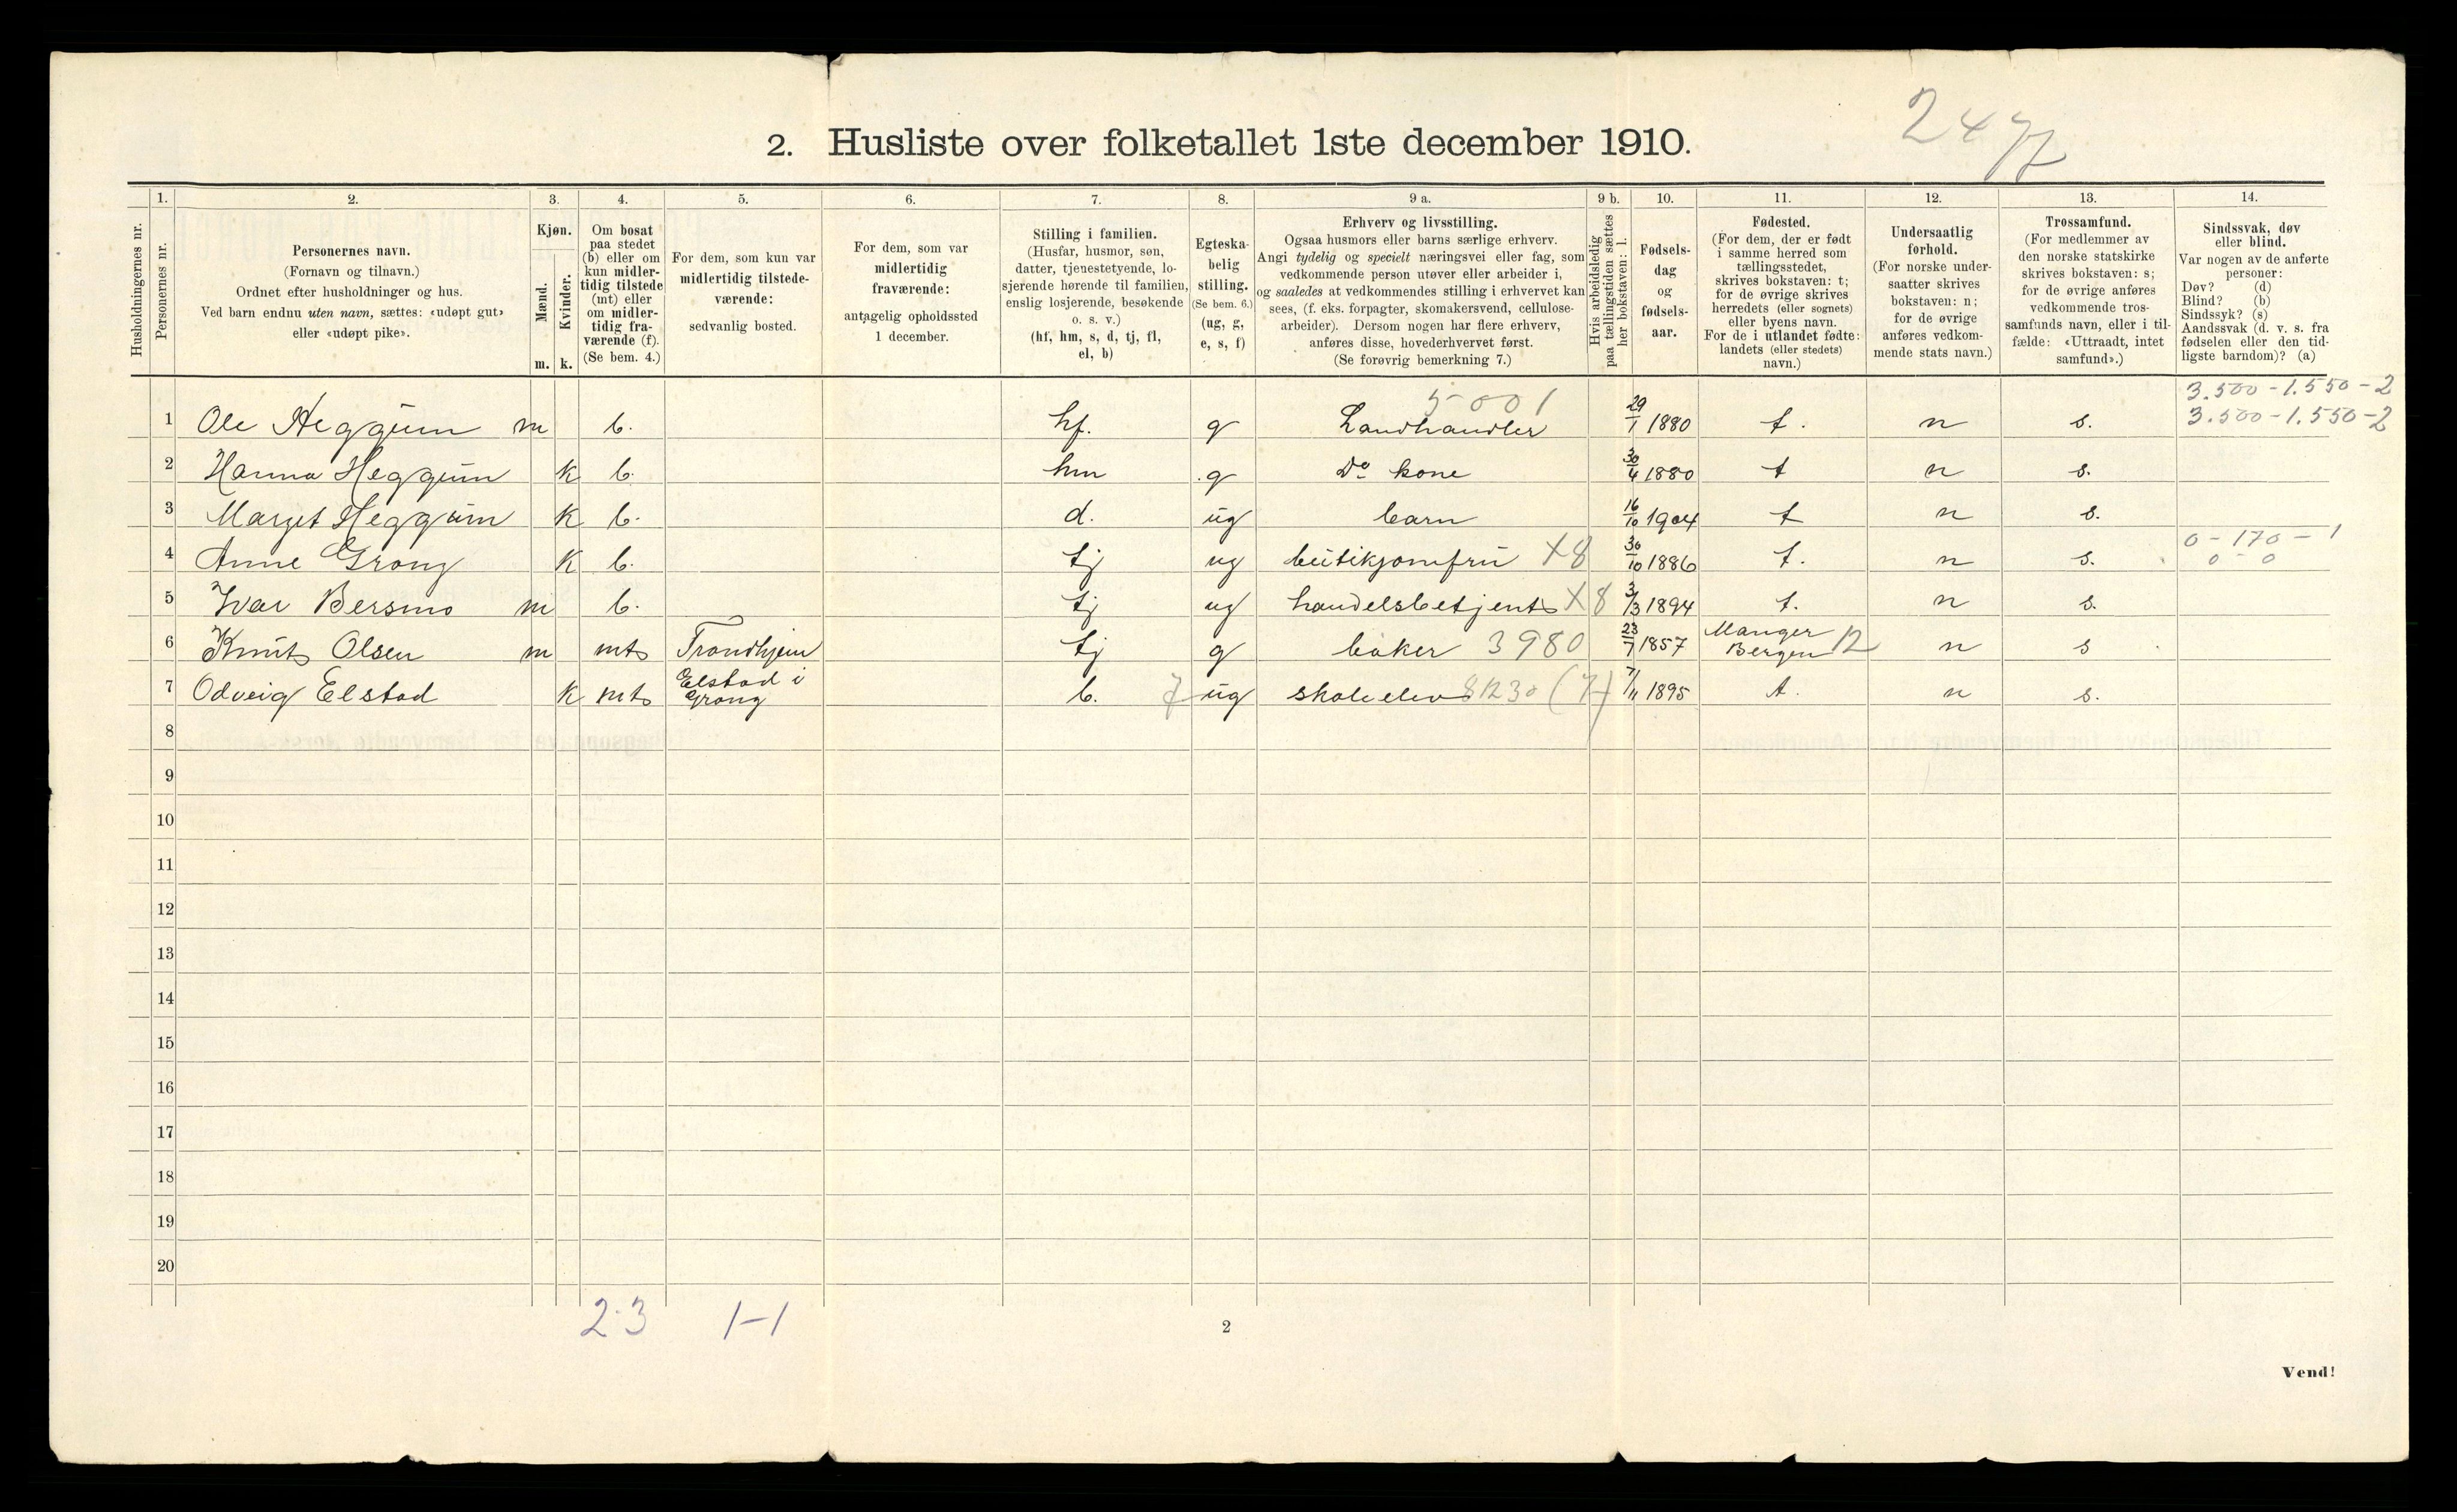 247
2. Husliste over folketallet 1ste december 1910.
Husholdningernes nr.
1.
Personernes nr.
2.
Personernes navn.
(Fornavn og tilnavn.)
Ordnet efter husholdninger og hus.
Ved barn endnu uten navn, sættes: «udøpt gut»
eller «udøpt pike».
3.
Kjøn.
Mænd.
Kvinder.
m. k.
4.
Om bosat
paa stedet
(b) eller om
kun midler-
tidig tilstede
(mt) eller
om midler-
tidig fra-
værende (f).
(Se bem. 4.)
5.
For dem, som kun var
midlertidig tilstede-
værende:
sedvanlig bosted.
6.
For dem, som var
midlertidig
fraværende:
antagelig opholdssted
1 december.
7.
Stilling i familien.
(Husfar, husmor, søn,
datter, tjenestetyende, lo-
sjerende hørende til familien,
enslig losjerende, besøkende
o. s. v.)
(hf, hm, s, d, tj, fl,
el, b)
8.
Egteska-
belig
stilling.
(Se bem. 6.)
(ug, g,
e, s, f)
9 a.
Erhverv og livsstilling.
Ogsaa husmors eller barns særlige erhverv.
Angi tydelig og specielt næringsvei eller fag, som
vedkommende person utøver eller arbeider i,
og saaledes at vedkommendes stilling i erhvervet kan
sees, (f. eks. forpagter, skomakersvend, cellulose-
arbeider). Dersom nogen har flere erhverv,
anføres disse, hovederhvervet først.
(Se forøvrig bemerkning 7.)
9 b.
Hvis arbeidsledig
paa tællingstiden sættes
her bokstaven: l.
10.
Fødsels-
dag
og
fødsels-
aar.
11.
Fødested.
(For dem, der er født
i samme herred som
tællingsstedet,
skrives bokstaven: t;
for de øvrige skrives
herredets (eller sognets)
eller byens navn.
For de i utlandet fødte:
landets (eller stedets)
navn.)
12.
Undersaatlig
forhold.
(For norske under-
saatter skrives
bokstaven: n;
for de øvrige
anføres vedkom-
mende stats navn.)
13.
Trossamfund.
(For medlemmer av
den norske statskirke
skrives bokstaven: s;
for de øvrige anføres
vedkommende tros-
samfunds navn, eller i til-
fælde: «Uttraadt, intet
samfund».)
14.
Sindssvak, døv
eller blind.
Var nogen av de anførte
personer:
Døv? (d)
Blind? (b)
Sindssyk? (s)
Aandssvak (d. v. s. fra
fødselen eller den tid-
ligste barndom)? (a)
3.500 - 1.550 - 2
5001
1 Ole Heggum m b. hf. g Landhandler 29/1 1880 t. n s. 3.500 - 1.550 - 2
2 Hanna Heggum k b. hm g Do kone 30/4 1880 t n s.
3 Marget Heggum k b. d. ug barn 16/10 1904 t n s.
0 - 170 - 1
4 Anne Grong k b. tj ug butikjomfru X8 30/10 1886 t. n s. 0 - 0
5 Ivar Bersmo m b. tj ug handelsbetjent X8 3/3 1894 t. n s.
6 Knut Olsen m mt Trondhjem tj g baker 3980 23/7 1857 Manger Bergen 12 n s
7 Odveig Elstad k mt Elstad i Grong b. 7 ug skoleelev 81230 (7) 7/11 1895 t. n s.
8
9
10
11
12
13
14
15
16
17
18
19
20
2-3 1-1
2
Vend!